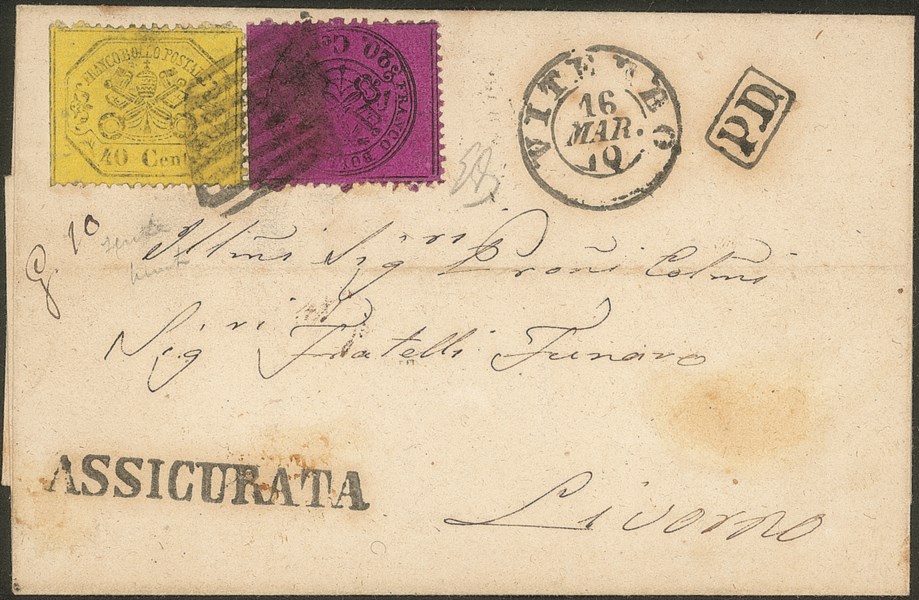 FRANCO BOLLO POSTALE
40 Cent
FRANCO BOL
20 C
VITERBO
16
MAR.
P.D.
G 10
Illmi Sigri Proñi Colmi
Sigri Fratelli Funaro
ASSICURATA
Livorno